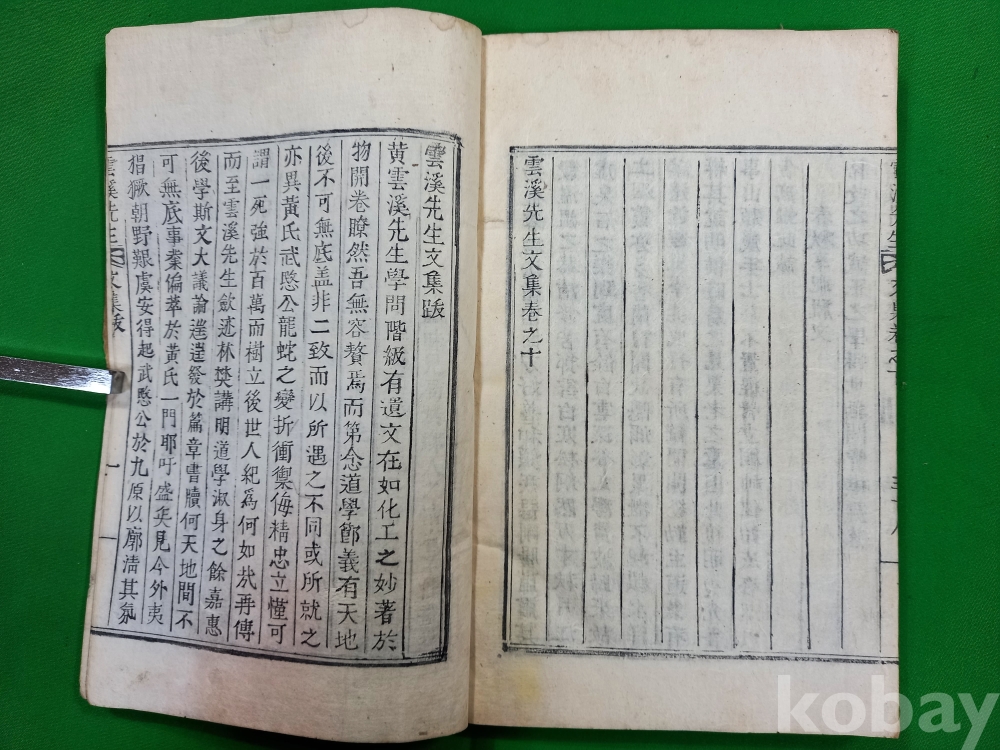 雲溪先生文集卷之十
雲溪先生文集跋
黃雲溪先生學問階級有遺文在如化工之妙著於
物開卷瞭然吾無容贅焉而第念道學節義有天地
後不可無底盖非二致而以所遇之不同或所就之
亦異黃氏武愍公龍蛇之變折衝禦侮精忠立慬可
謂一死強於百萬而樹立後世人紀爲何如哉再傳
而至雲溪先生斂迹林樊講明道學淑身之餘嘉惠
後學斯文大議論進進發於篇章書牘何天地間不
可無底事橐偏萃於黃氏一門耶吁盛矣見今外夷
猖獗朝野艱虞安得起武愍公於九原以廓淸其氛
雲溪先生文集跋
一
kobay